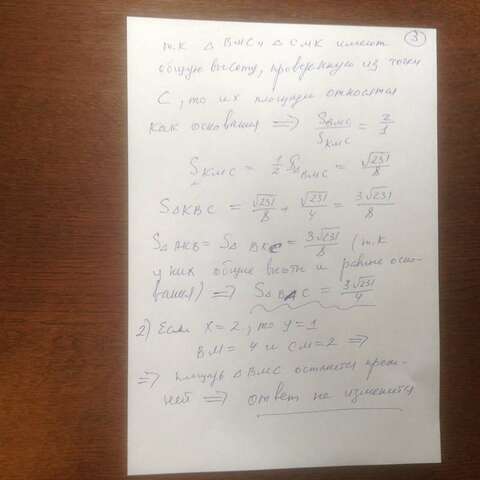 3
т.к △ BMC и △ CMK имеют
общую высоту, проведенную из точки
C, то их площади относятся
как основания ⇒ S_BMC/S_KMC = 2/1
S_KMC = 1/2 S_BMC = √231/8
S△KBC = √231/8 + √231/4 = 3√231/8
S△AKB = S△BKC = 3√231/8 (т.к
у них общие высоты и равные осно-
вания) ⇒ S△BAC = 3√231/4
2) Если X=2, то y=1
BM = 4 и CM=2 ⇒
⇒ площадь △BMC останется преж-
ней ⇒ ответ не изменится.